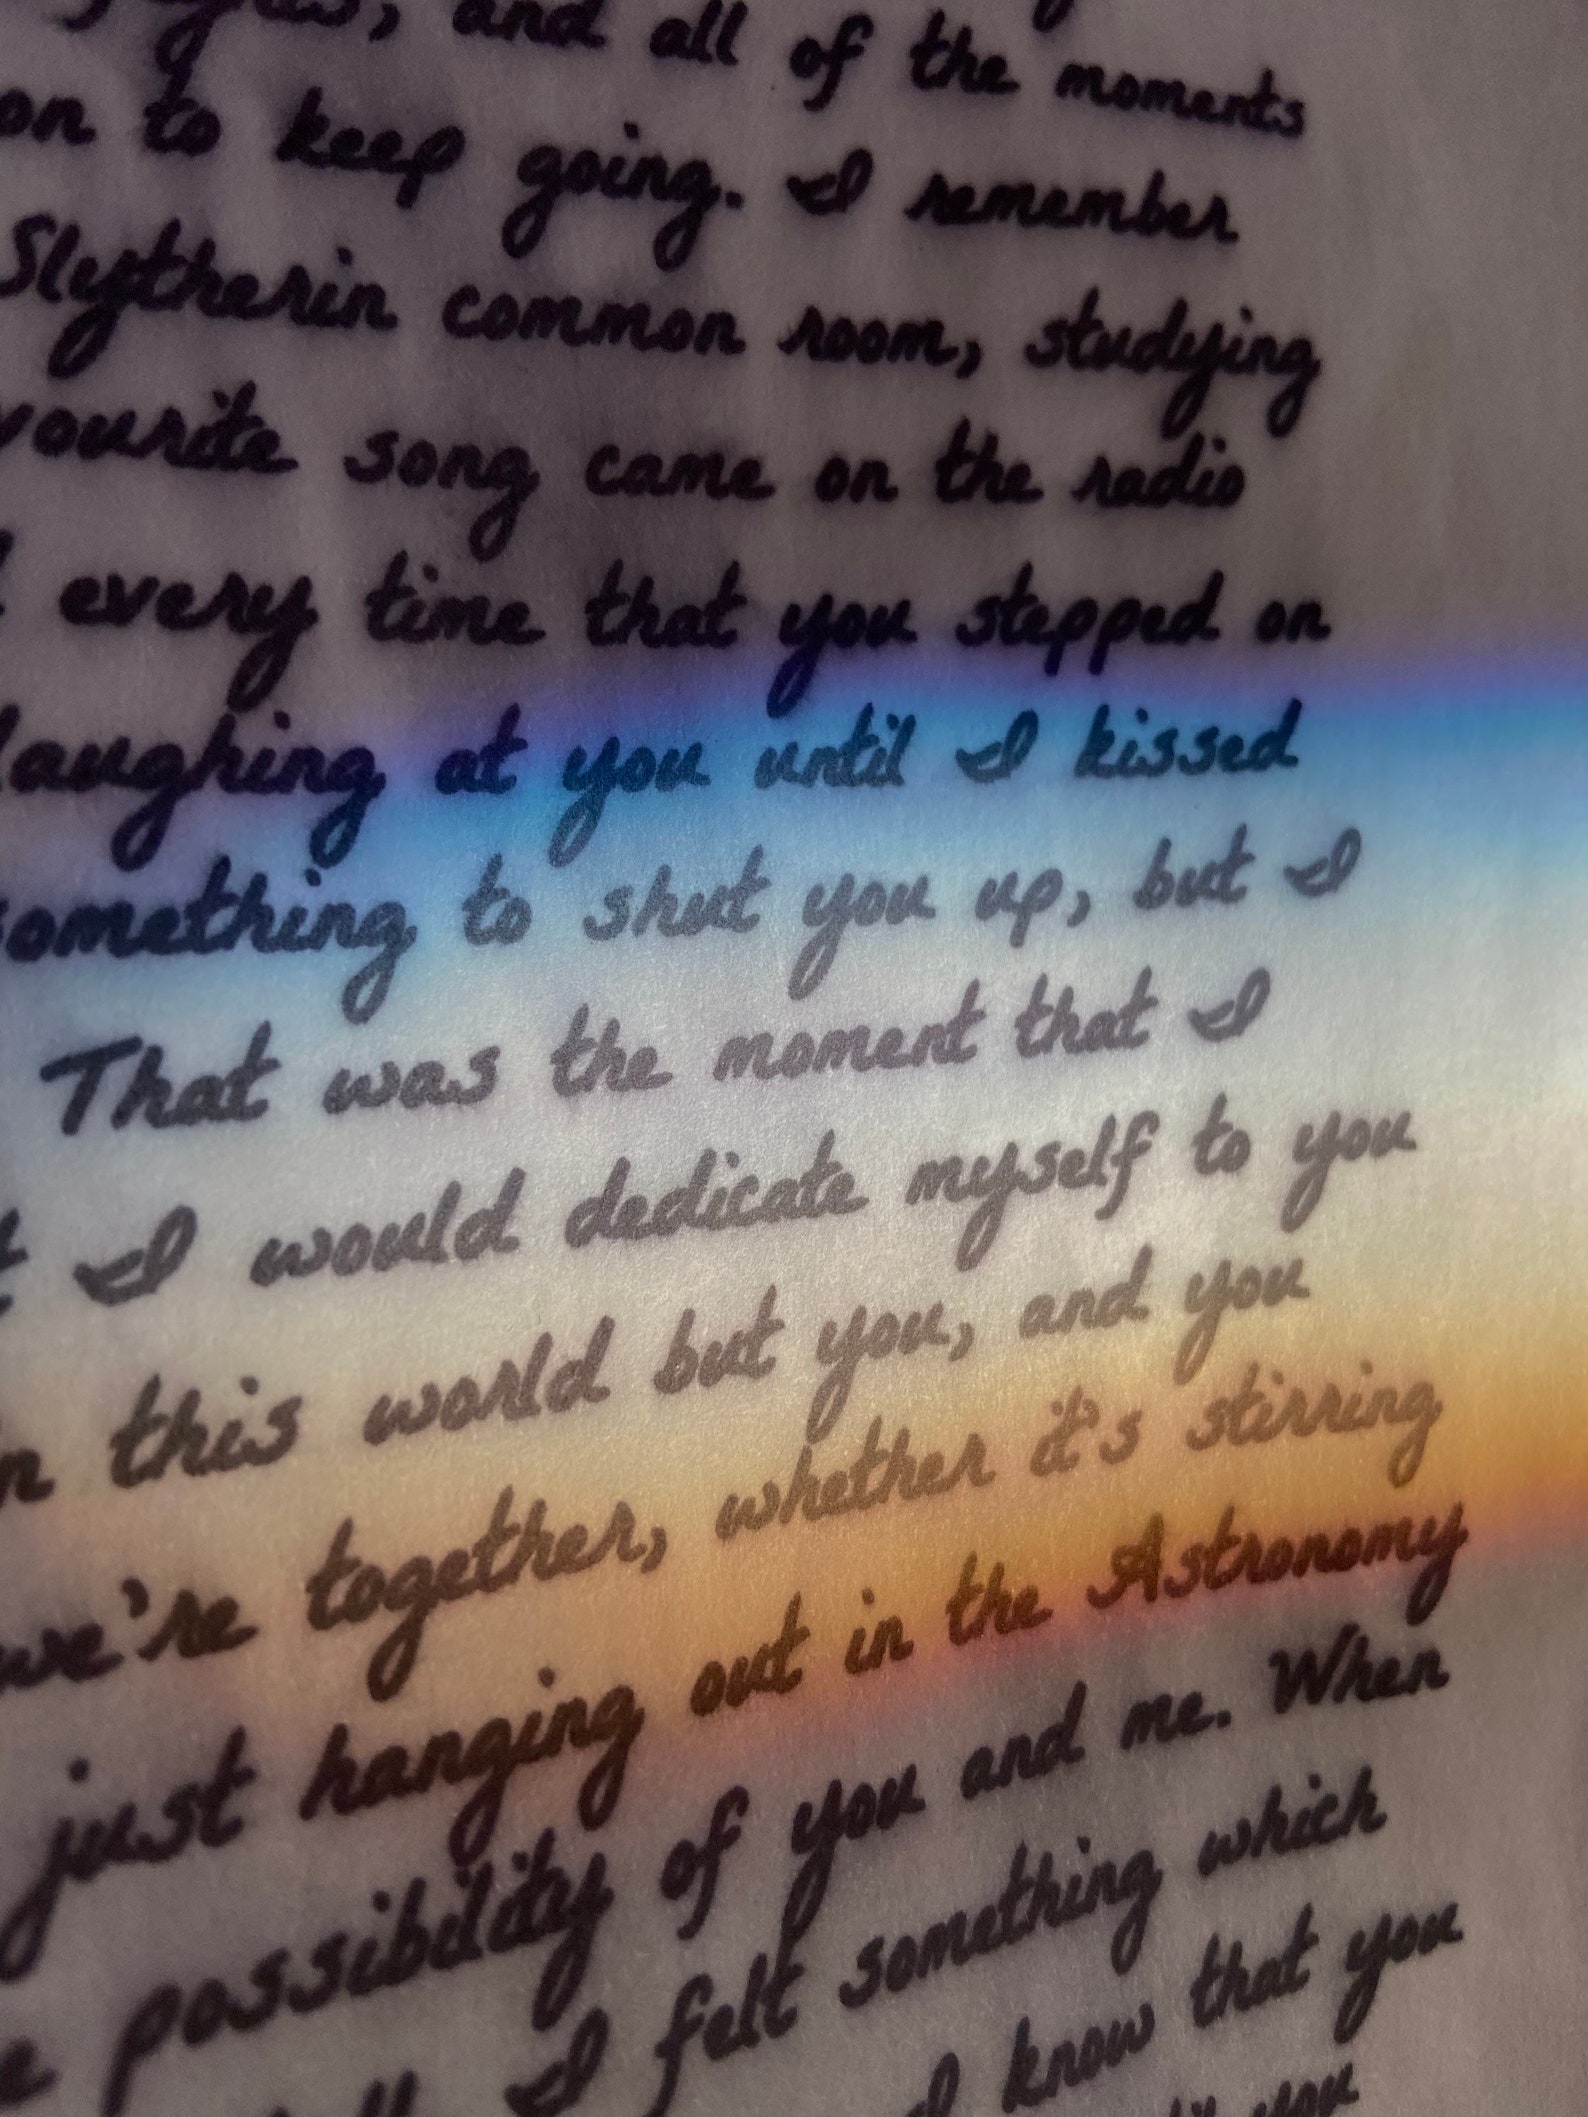 and all of the moments
on to keep going. I remember
Slytherin common room, studying
vourite song came on the radio
every time that you stepped on
laughing at you until I kissed
omething to shut you up, but I
That was the moment that I
I would dedicate myself to you
this world but you, and you
we're together, whether it's stirring
just hanging out in the Astronomy
possibility of you and me. When
I felt something which
I know that you
you